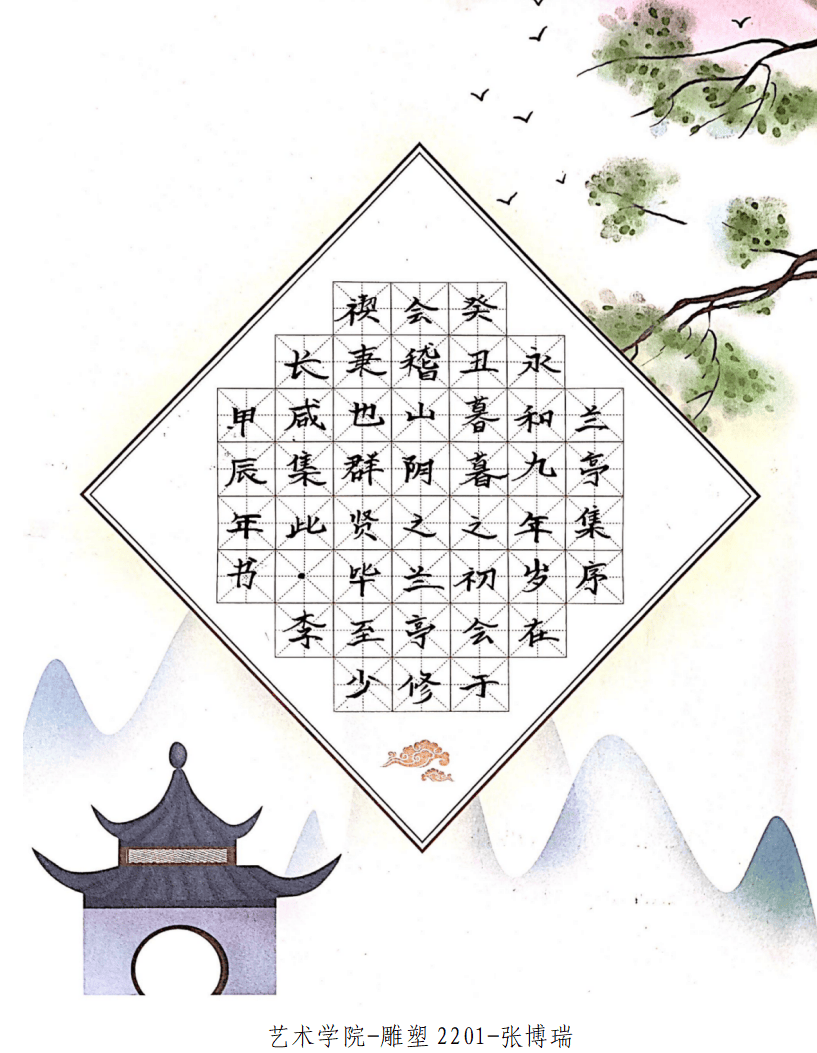 兰亭集序
永和九年岁在
癸丑暮暮之初会于
会稽山阴之兰亭修
禊事也群贤毕至少
长咸集此·李
甲辰年书
艺术学院-雕塑2201-张博瑞